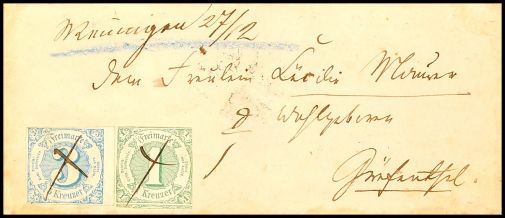 Meiningen 27/12
Dem Fräulein Cäcilie Maurer
Wohlgeboren
Gräfenthal.
Freimarke Freimarke
3 1
Kreuzer Kreuzer